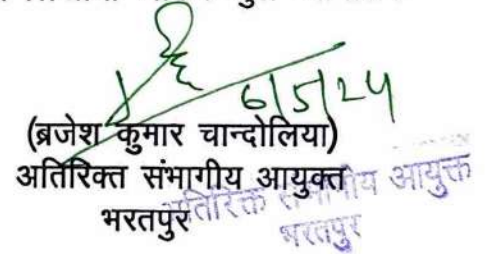 6/5/24
(ब्रजेश कुमार चान्दोलिया)
अतिरिक्त संभागीय आयुक्त
भरतपुर
अतिरिक्त संभागीय आयुक्त
भरतपुर